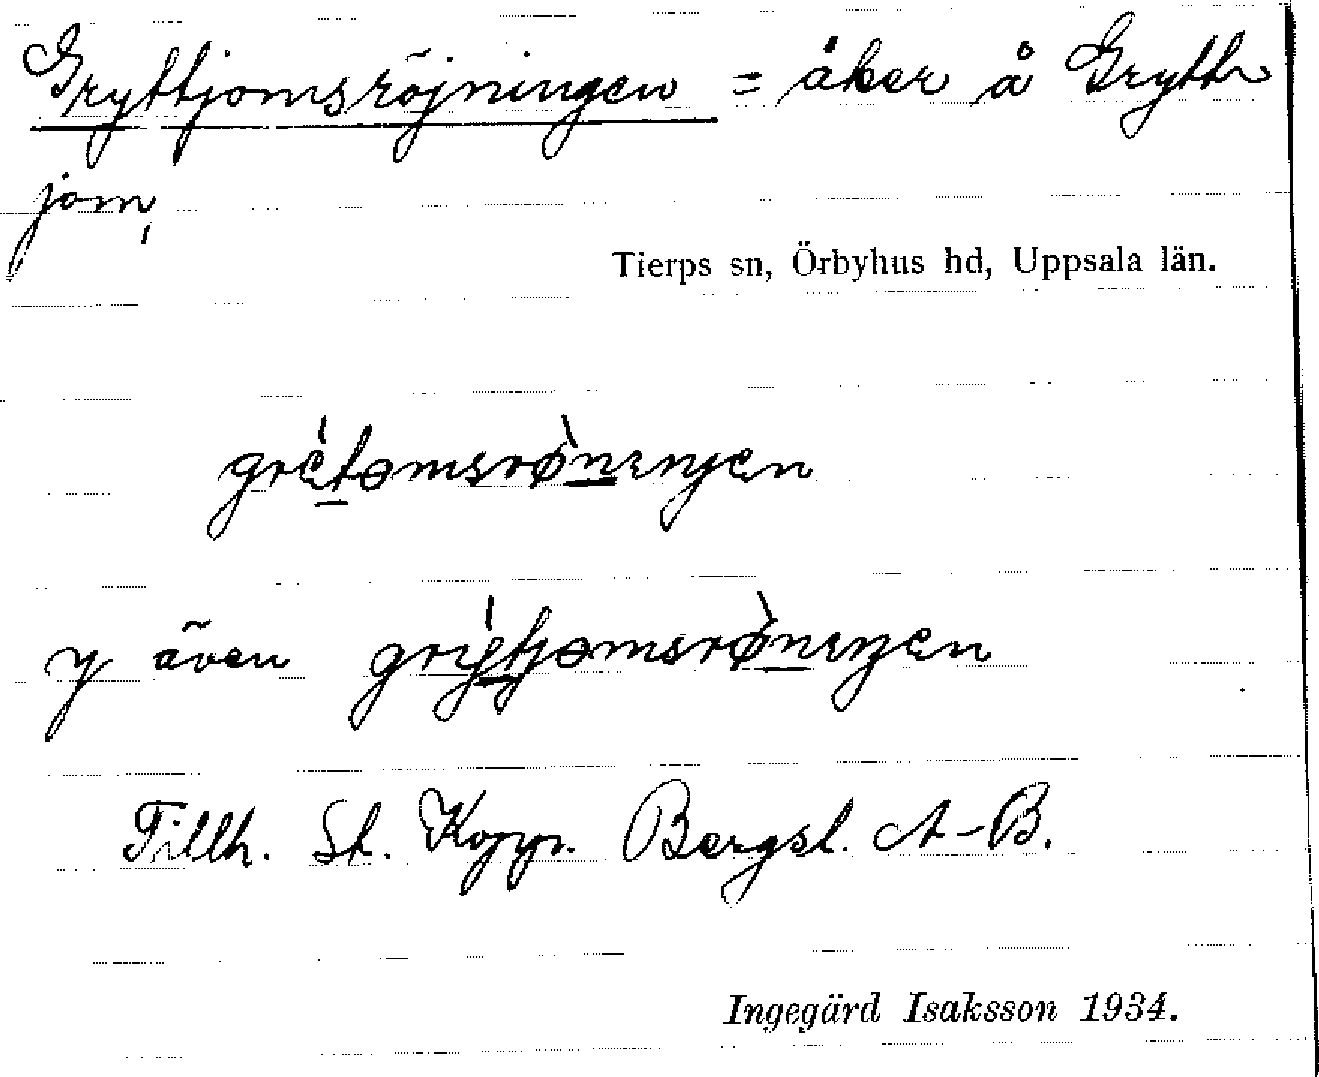 Gryttjomsröjningen = åker å Grytt-
jom,
Tierps sn, Örbyhus hd, Uppsala län.
även
Tillh. St. Kopp. Bergsl. A-B.
Ingegärd Isaksson 1934.